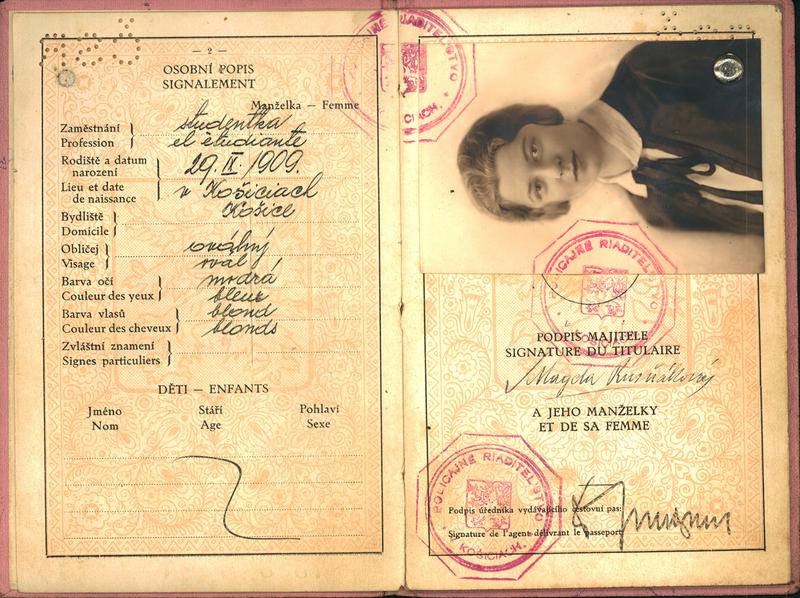 — 2 —
OSOBNÍ POPIS
SIGNALEMENT
Manželka — Femme
Zaměstnání
Profession
studentka
et étudiante
Rodiště a datum
narození
Lieu et date
de naissance
29. II. 1909.
v Košiciach
Bydliště
Domicile
Košice
Obličej
Visage
oválny
oval
Barva očí
Couleur des yeux
modrá
bleux
Barva vlasů
Couleur des cheveux
blond
blonds
Zvláštní znamení
Signes particuliers
DĚTI — ENFANTS
Jméno Stáří Pohlaví
Nom Age Sexe
POLICAJNE RIADITEĽSTVO
KOŠICIACH.
PODPIS MAJITELE
SIGNATURE DU TITULAIRE
Magda
A JEHO MANŽELKY
ET DE SA FEMME
POLICAJNE RIADITEĽSTVO
V KOŠICIACH.
Podpis úředníka vydávajícího cestovní pas:
Signature de l'agent délivrant le passeport